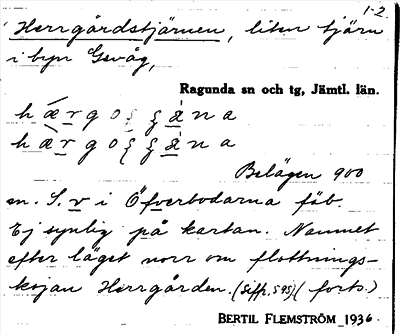 1-2.
Herrgårdstjärnen, liten tjärn
i byn Gevåg,
Ragunda sn och tg, Jämtl. län.
Belägen 900
m. S. v i Öfverbodarna fäb.
Ej synlig på kartan. Namnet
efter läget norr om flottnings-
kojan Herrgården. (Siffr. 595) (forts.)
BERTIL FLEMSTRÖM 1936.